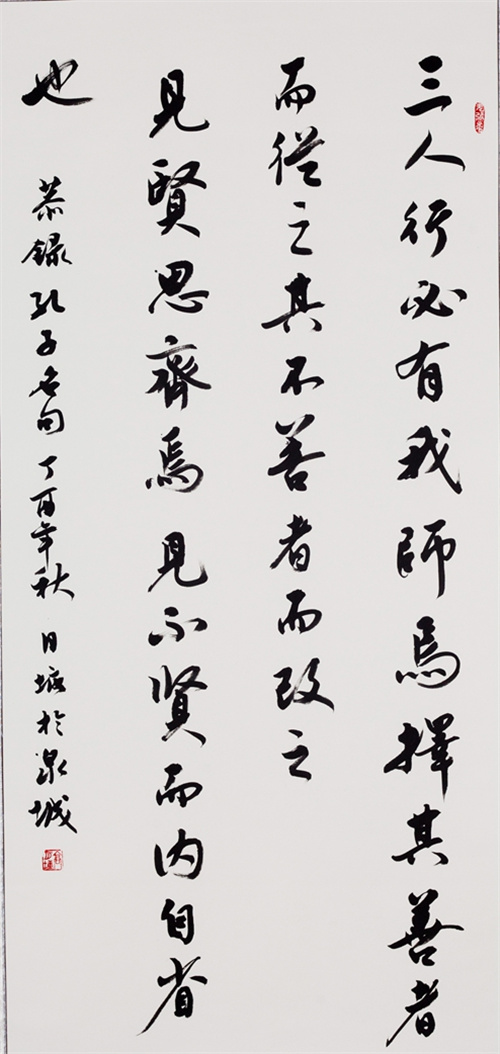 三人行必有我師焉擇其善者
而從之其不善者而改之
見賢思齊焉見不賢而内自省
也
恭錄孔子名句丁酉年秋日塘於泉城